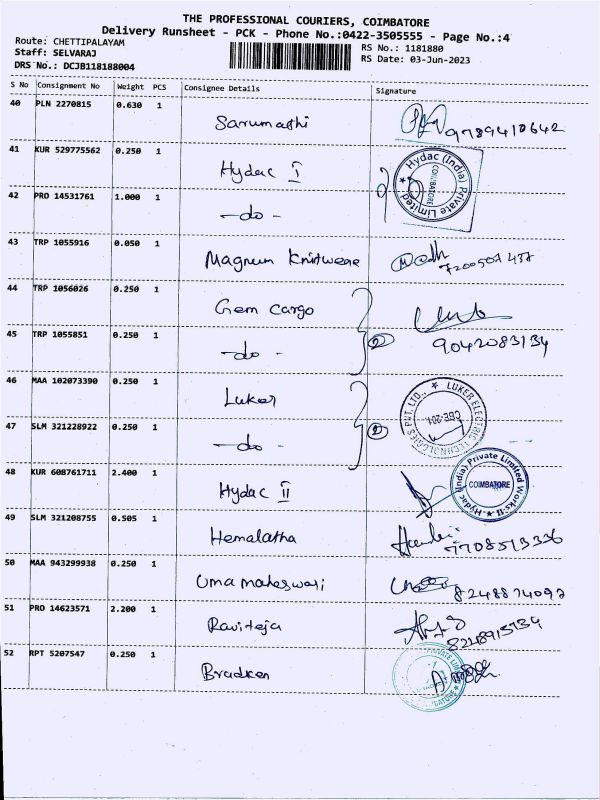 THE PROFESSIONAL COURIERS, COIMBATORE
Delivery Runsheet - PCK - Phone No.:0422-3505555 - Page No.:4
Route: CHETTIPALAYAM
RS No.: 1181880
Staff: SELVARAJ
RS Date: 03-Jun-2023
DRS No.: DCJB118188004
S No Consignment No Weight PCS Consignee Details Signature
40 PLN 2270815 0.630 1 Sarumathi 9789410642
41 KUR 529775562 0.250 1 Hydac I
Hydac (India) Private Limited
COIMBATORE
42 PRO 14531761 1.000 1 -do-
43 TRP 1055916 0.050 1 Magnum Knitweare
44 TRP 1056026 0.250 1 Gem cargo
45 TRP 1055851 0.250 1 -do- 2 9042083134
46 MAA 102073390 0.250 1 Luker
LUKER ELECTRIC TECHNOLOGIES PVT. LTD.,
CBE-201
47 SLM 321228922 0.250 1 -do- 2
48 KUR 608761711 2.400 1 Hydac II
Hydac (India) Private Limited Works-II
COIMBATORE
49 SLM 321208755 0.505 1 Hemalatha 7708513336
50 MAA 943299938 0.250 1 Uma maheswari 8248874092
51 PRO 14623571 2.200 1 Raviteja 8228915934
52 RPT 5207547 0.250 1 Bradken